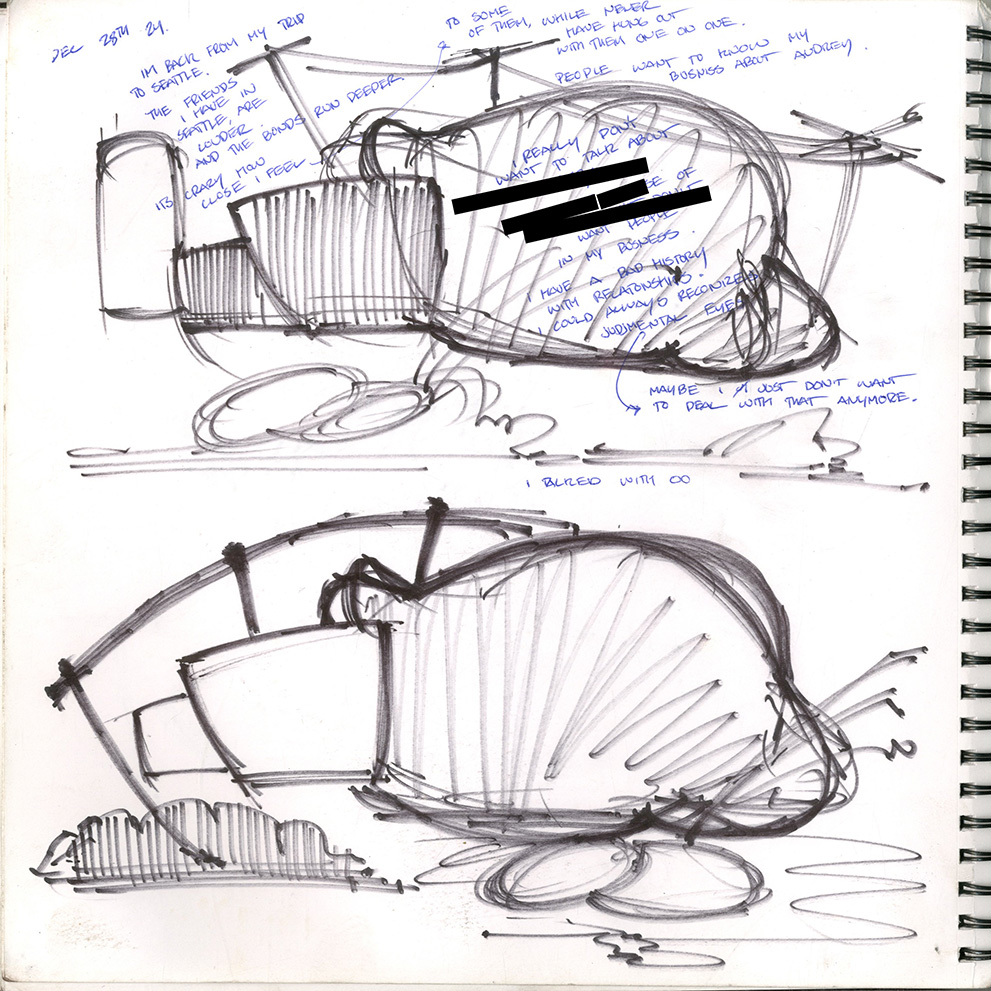 DEC 28TH 24.
IM BACK FROM MY TRIP
TO SEATTLE.
THE FRIENDS
I HAVE IN
SEATTLE, ARE
LOUDER.
AND THE BONDS RUN DEEPER.
ITS CRAZY HOW
CLOSE I FEEL
TO SOME
OF THEM, WHILE NEVER
HAVE HUNG OUT
WITH THEM ONE ON ONE.
PEOPLE WANT TO KNOW MY
BUSNISS ABOUT AUDREY.
I REALLY DON'T
WANT TO TALK ABOUT
SE OF
WANT PEOPLE
IN MY BUSNESS.
I HAVE A BAD HISTORY
WITH RELATIONSHIPS.
I COULD ALWAYS RECONIZE
JUDMENTAL EYES
MAYBE I JUST DON'T WANT
TO DEAL WITH THAT ANYMORE.
I TALKED WITH